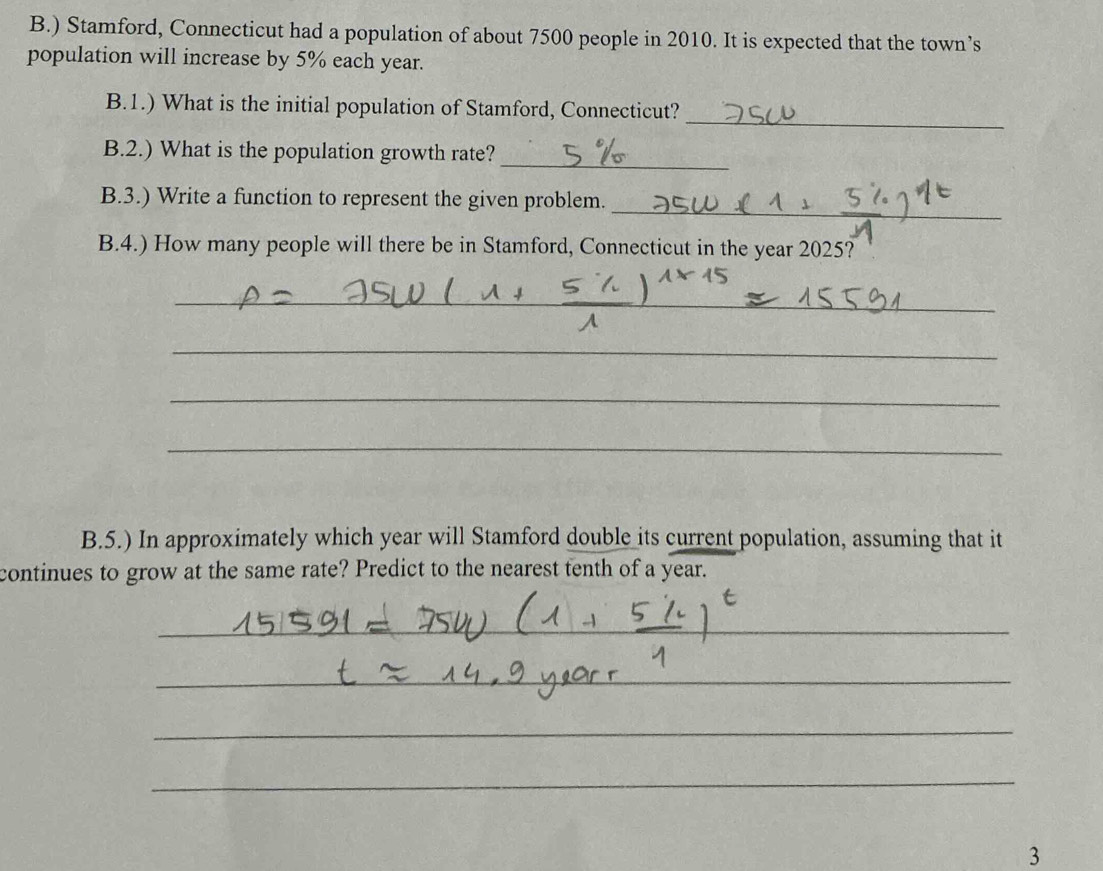 B.) Stamford, Connecticut had a population of about 7500 people in 2010. It is expected that the town's
population will increase by 5% each year.
B.1.) What is the initial population of Stamford, Connecticut? 7500
B.2.) What is the population growth rate? 5%
B.3.) Write a function to represent the given problem. 7500 (1 + 5%/1)^1t
B.4.) How many people will there be in Stamford, Connecticut in the year 2025?
A = 7500 (1 + 5%/1)^1×15 ≈ 15591
B.5.) In approximately which year will Stamford double its current population, assuming that it
continues to grow at the same rate? Predict to the nearest tenth of a year.
15591 = 7500 (1 + 5%/1)^t
t ≈ 14.9 years
3